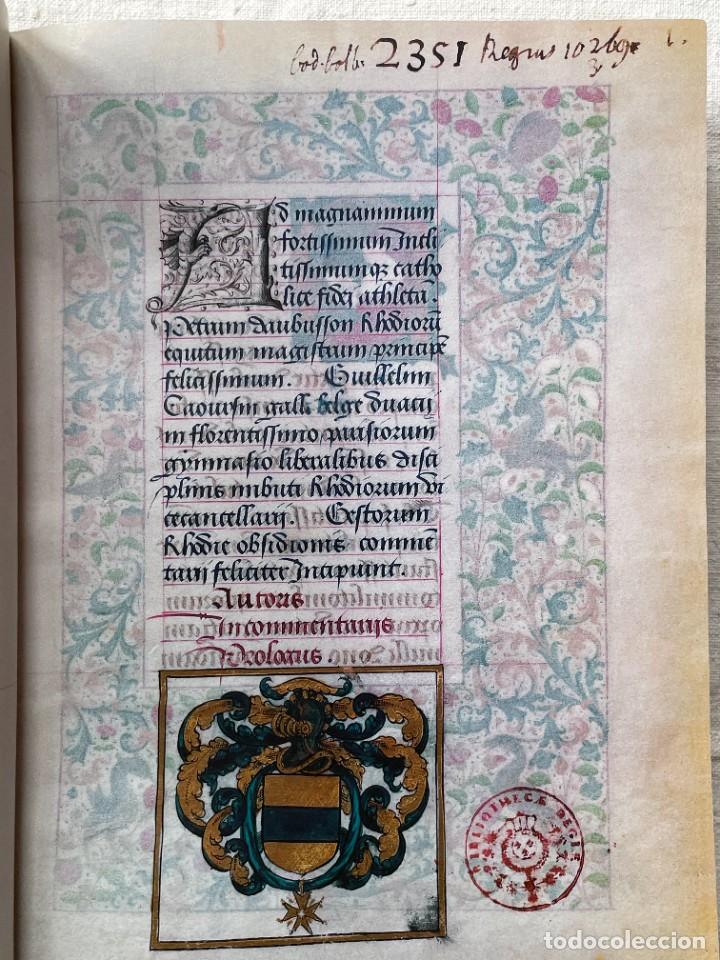 Cod. Colb. 2351 Regius 10269 1.
3
Ad magnanimum
fortissimum Incli
tissimumqꝫ catho
lice fidei athletā.
Petrum daubusson Rhodiorū
equitum magistrum principē
felicissimum. Guillelmi
Caoursin galli belge duacij
in florentissimo parisiorum
gymnasio liberalibus disci
plinis imbuti Rhodiorum vi
cecancellarij. Gestorum
Rhodie obsidionis commē
tarij feliciter Incipiunt.
Autoris
In commentarijs
Prologus.
BIBLIOTHECÆ REGIÆ
todocoleccion
todocoleccion.net